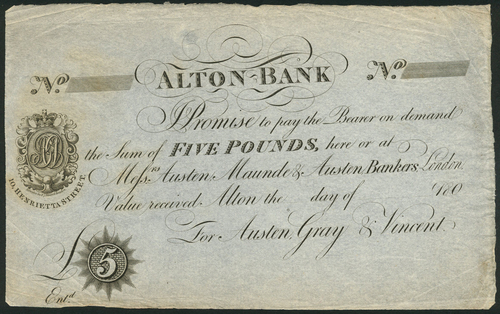 No. ALTON-BANK No.
I Promise to pay the Bearer on demand
the Sum of FIVE POUNDS, here or at
Mess.rs Austen, Maunde & Austen, Bankers, London.
10, HENRIETTA STREET.
Value received. Alton the day of 180
For Austen, Gray & Vincent.
£ 5
Ent.d